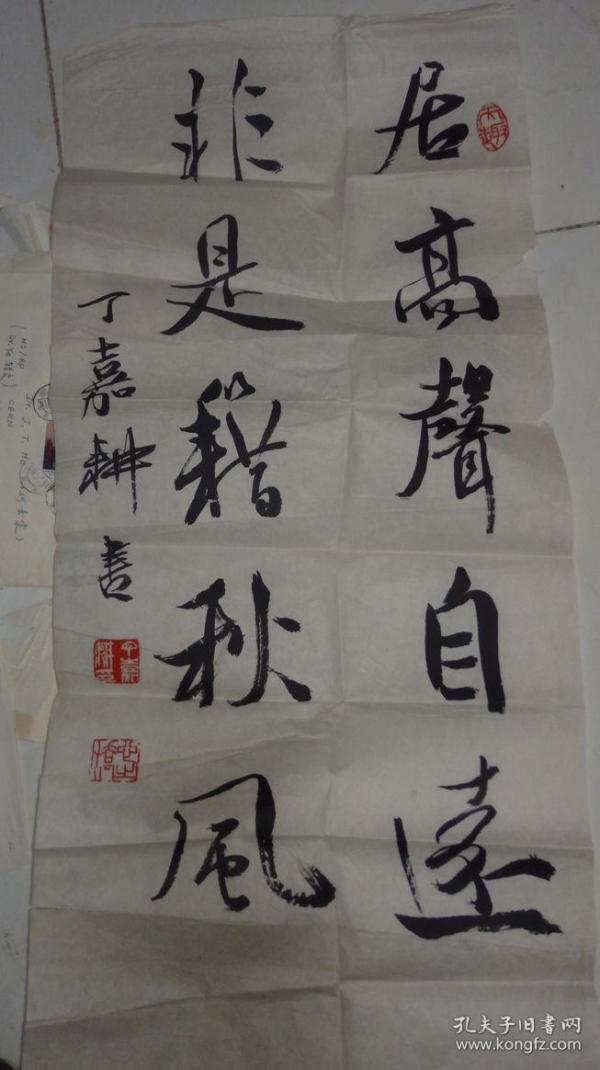 居高聲自遠
非是籍秋風
丁嘉耕書
孔夫子旧书网
www.kongfz.com